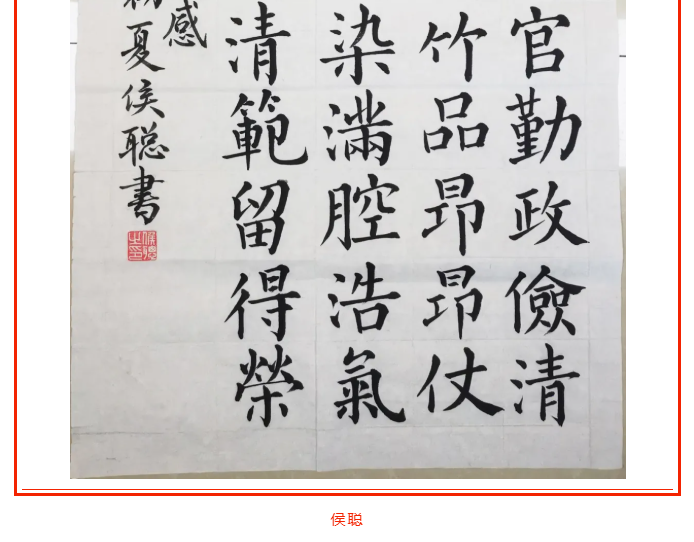 官勤政儉清
竹品昂昂仗
染滿腔浩氣
清範留得榮
感
初夏侯聪書
侯聪